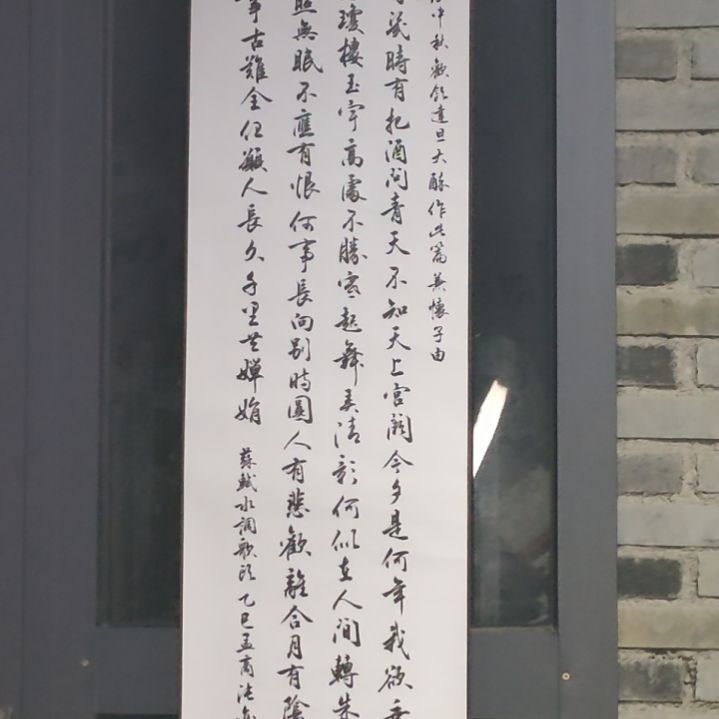 中秋歡飲達旦大醉作此篇兼懷子由
幾時有把酒問青天不知天上宮闕今夕是何年我欲乘
瓊樓玉宇高處不勝寒起舞弄清影何似在人間轉朱
照無眠不應有恨何事長向別時圓人有悲歡離合月有陰
事古難全但願人長久千里共嬋娟
蘇軾水調歌頭乙巳孟商